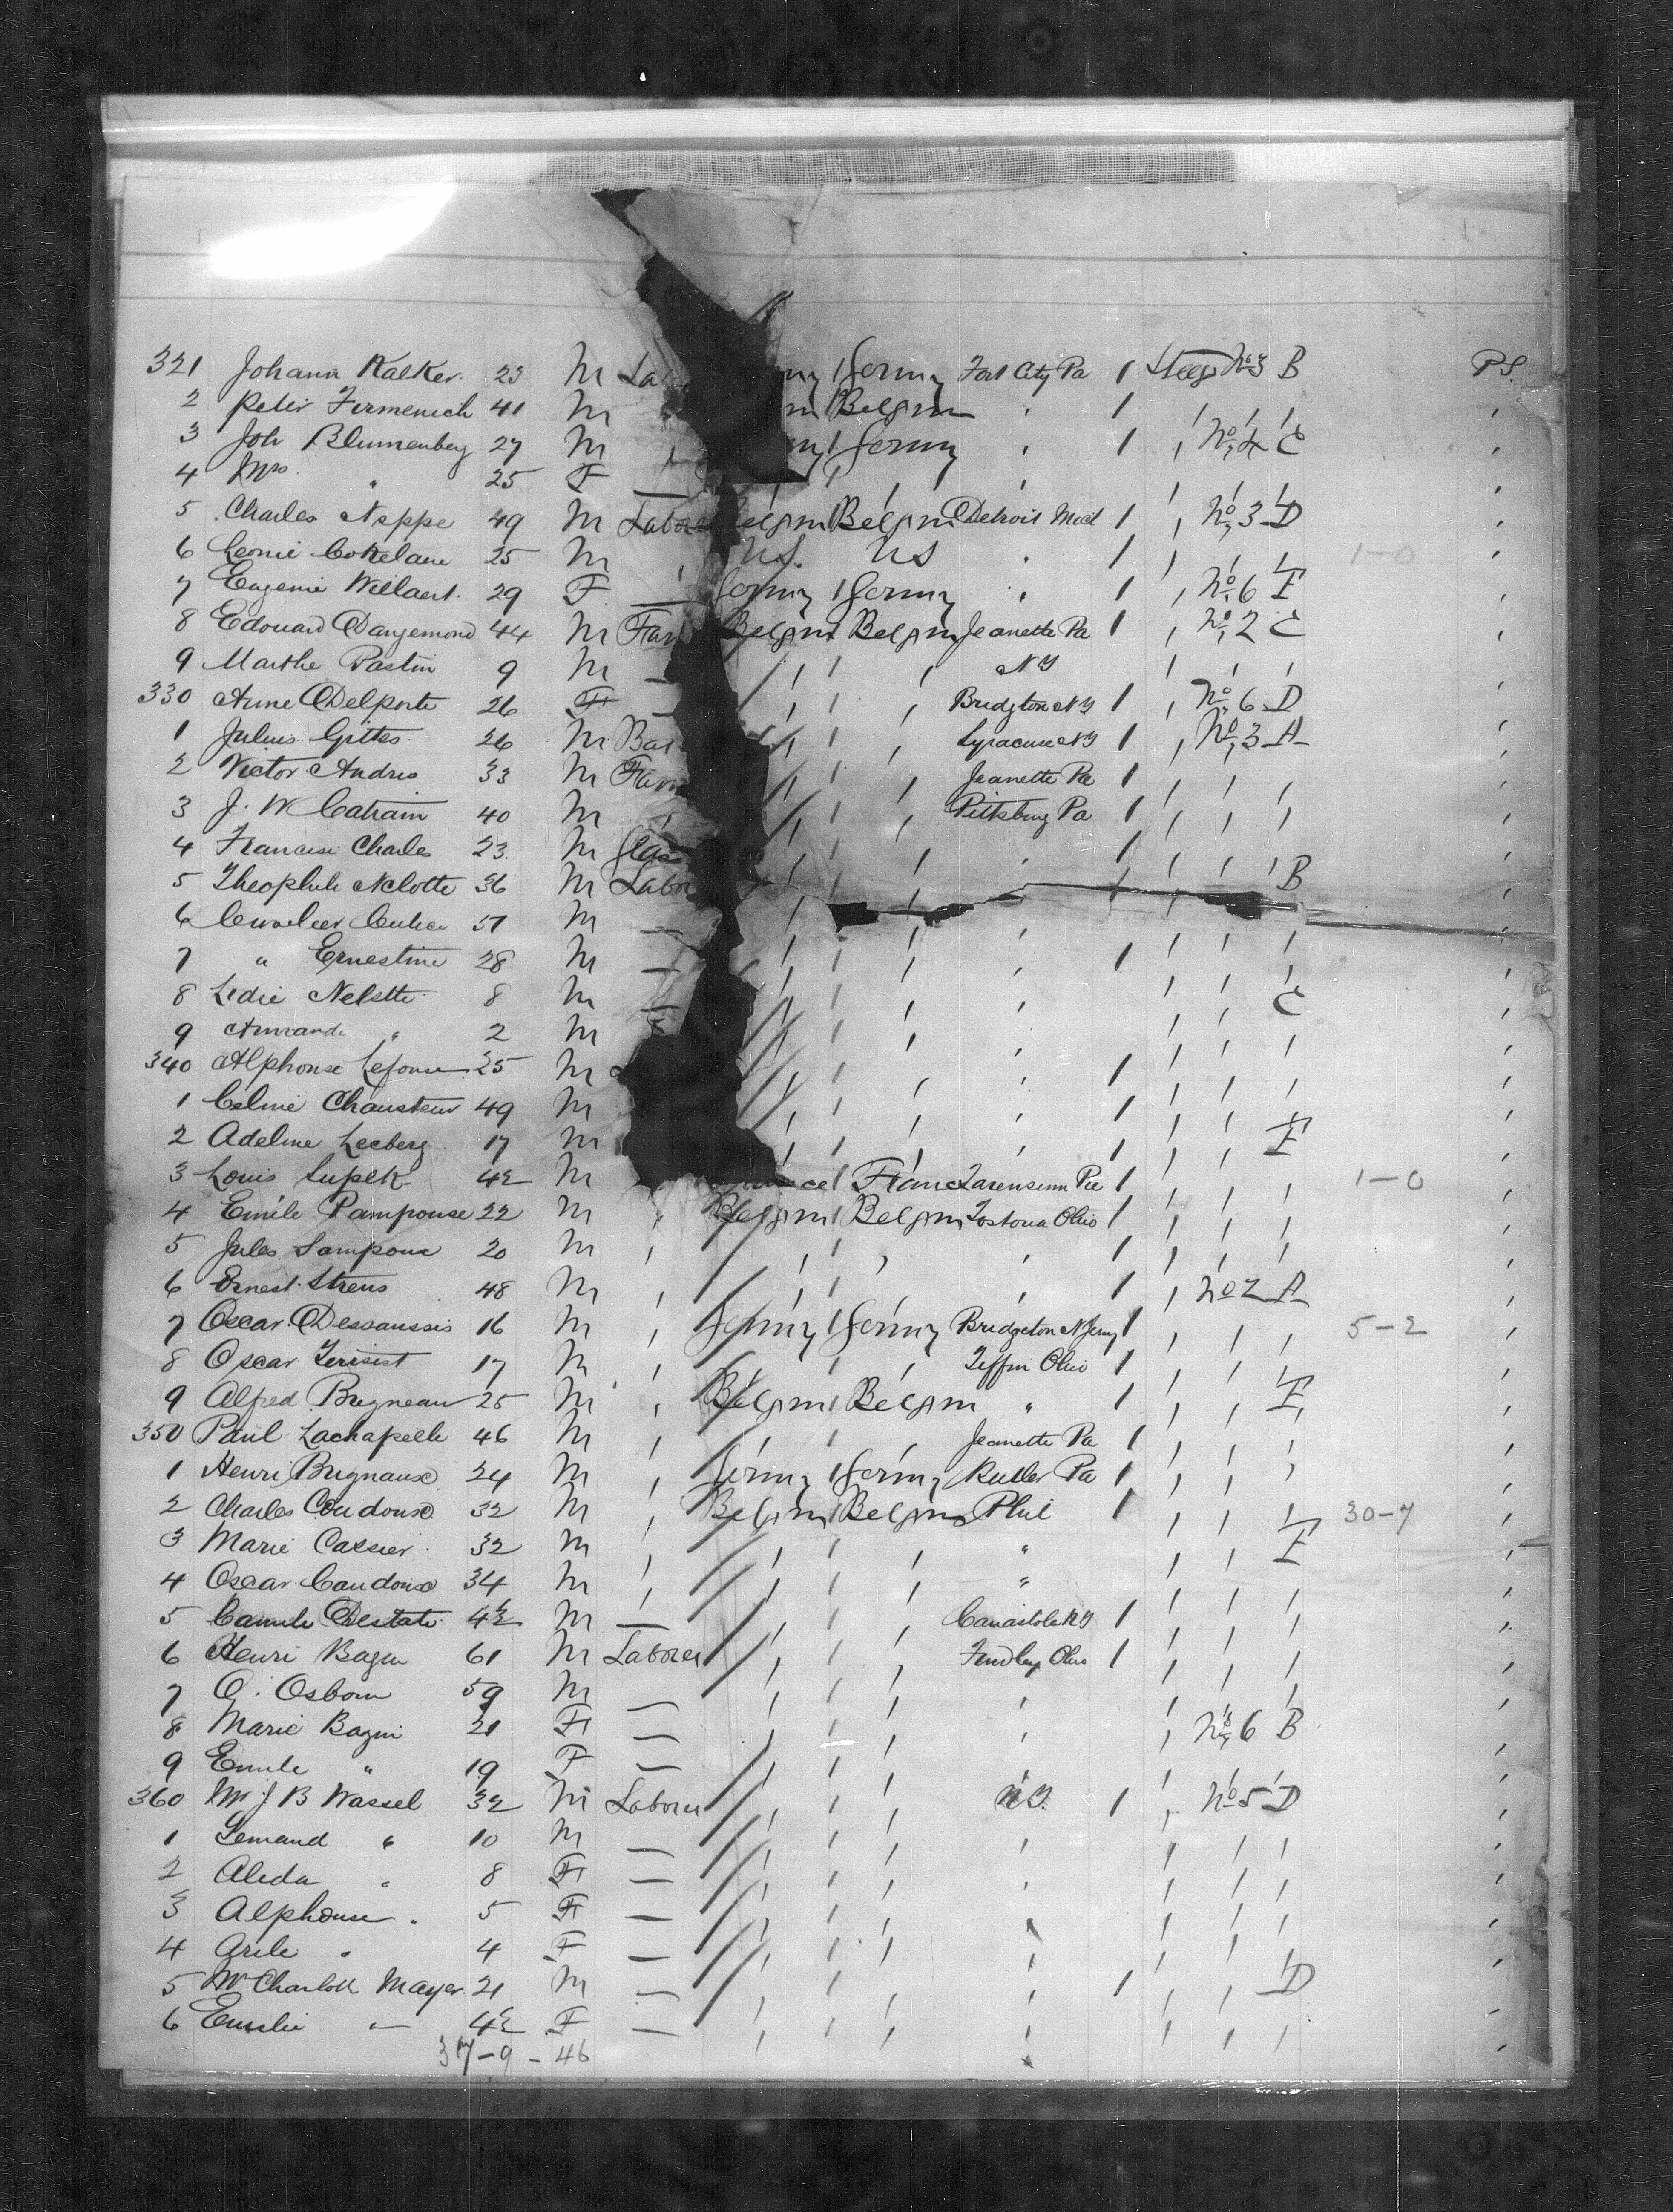 321 Johann Kalker 23 M La Germy Fort City Pa 1 Steege No 3 B P.S.
2 Peter Firmenich 41 M Belgm ' 1 '
3 Joh Blumenberg 27 M ' Germy ' 1 ' No 4 C '
4 Mrs " 25 F — ' ' '
5 Charles Neppe 49 M Labor Belgm Belgm Detroit Mich 1 ' No 3 D '
6 Leonie 25 M ' U.S. US ' 1 ' 1-0 '
7 Eugenie Willaert 29 F — Germy Germy ' 1 ' No 6 F '
8 Edouard Dangemond 44 M Far Belgm Belgm Jeanette Pa 1 ' No 2 C '
9 Marthe Pastin 9 M — ' ' ' NY ' ' '
330 Anne Delporte 26 F — ' ' ' Bridgton NY 1 ' No 6 D '
1 Julius Gittes 26 M Bar ' ' ' Syracuse NY 1 ' No 3 A '
2 Victor Andris 33 M Farm ' ' ' Jeanette Pa 1 ' ' ' '
3 J. W Catrain 40 M ' ' ' ' Pittsburg Pa 1 ' ' ' '
4 Francise Charles 23 M Glas ' ' ' ' 1 ' ' ' '
5 Theophile Nelotte 36 M Labor ' ' ' ' 1 ' ' B '
6 51 M — ' ' ' ' ' ' '
7 " Ernestine 28 M — ' ' ' ' 1 ' ' ' '
8 Ledie Nelotte 8 M — ' ' ' ' ' ' C '
9 Armande " 2 M ' ' ' ' ' ' ' '
340 Alphonse Lefouse 25 M ' ' ' ' 1 ' ' ' '
1 Celine Chausteur 49 M ' ' ' ' 1 ' ' ' '
2 Adeline Lecberg 17 M ' ' ' ' 1 ' ' F '
3 Louis Supek 42 M ce Franc 1 ' ' ' 1-0 '
4 Emile Pampouse 22 M ' Belgm Belgm Tostoria Ohio 1 ' ' ' '
5 Jules Sampoux 20 M ' ' ' ' ' 1 ' ' ' '
6 Ernest Streus 48 M ' ' ' ' ' 1 ' No 2 A '
7 Oscar Dessaussis 16 M ' Germy Germy Bridgeton N Jersy 1 ' ' ' 5-2 '
8 Oscar Terisist 17 M ' ' ' ' Tiffin Ohio 1 ' ' ' '
9 Alfred Brigneaux 25 M ' Belgm Belgm " 1 ' ' F '
350 Paul Lachapelle 46 M ' ' ' ' Jeanette Pa 1 ' ' ' '
1 Henri Brignaux 24 M ' Germy Germy Butler Pa 1 ' ' ' '
2 Charles Coudoux 32 M ' Belgm Belgm Phil 1 ' ' ' 30-7 '
3 Marie Cassier 32 M ' ' ' ' " ' ' F '
4 Oscar Caudoux 34 M ' ' ' ' " ' ' ' '
5 Camile Destate 42 M — ' ' ' Canastota NY 1 ' ' ' '
6 Henri Bagin 61 M Laborer ' ' ' Findlay Ohio 1 ' ' ' '
7 O. Osborn 59 M — ' ' ' ' ' ' ' '
8 Marie Bagin 21 F — ' ' ' ' ' No 6 B '
9 Emile " 19 F — ' ' ' ' ' ' '
360 Mr J B Wassel 32 M Laborer ' ' ' N.Y. 1 ' No 5 D '
1 Femand " 10 M — ' ' ' ' ' ' ' '
2 Aleda " 8 F — ' ' ' ' ' ' ' '
3 Alphonse " 5 F — ' ' ' ' ' ' ' '
4 Arile " 4 F — ' ' ' ' ' ' ' '
5 Mr Charlott Mayer 21 M — ' ' ' ' 1 ' ' D '
6 Emilie — 42 F — ' ' ' ' ' ' ' '
37-9-46